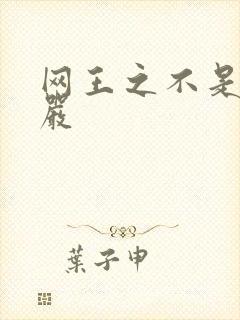 网王之不是
嚴
葉子申